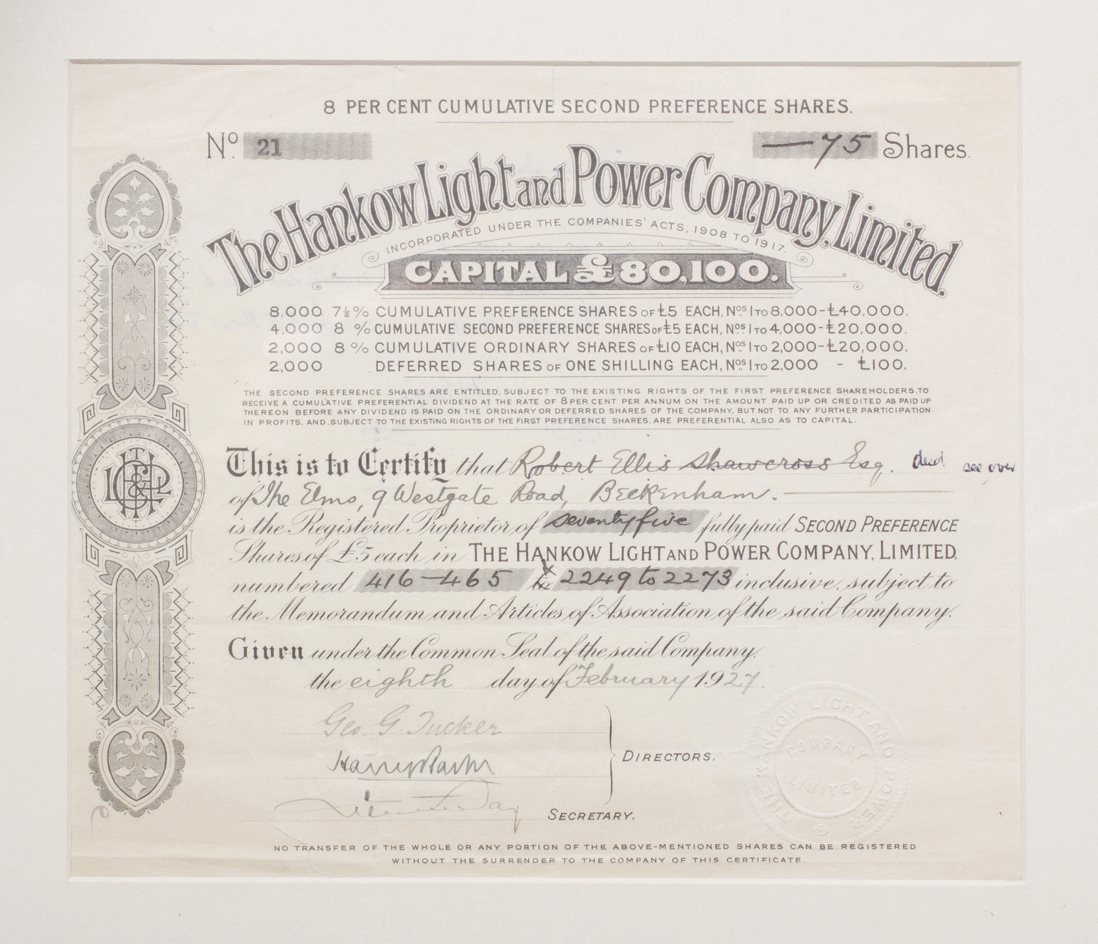 8 PER CENT CUMULATIVE SECOND PREFERENCE SHARES.
No. 21
—75 Shares.
The Hankow Light and Power Company, Limited.
INCORPORATED UNDER THE COMPANIES' ACTS, 1908 TO 1917.
CAPITAL £80,100.
8,000 7½% CUMULATIVE PREFERENCE SHARES OF £5 EACH, Nos 1 TO 8,000 - £40,000.
4,000 8 % CUMULATIVE SECOND PREFERENCE SHARES OF £5 EACH, Nos 1 TO 4,000 - £20,000.
2,000 8 % CUMULATIVE ORDINARY SHARES OF £10 EACH, Nos 1 TO 2,000 - £20,000.
2,000 DEFERRED SHARES OF ONE SHILLING EACH, Nos 1 TO 2,000 - £100.
THE SECOND PREFERENCE SHARES ARE ENTITLED, SUBJECT TO THE EXISTING RIGHTS OF THE FIRST PREFERENCE SHAREHOLDERS, TO
RECEIVE A CUMULATIVE PREFERENTIAL DIVIDEND AT THE RATE OF 8 PER CENT PER ANNUM ON THE AMOUNT PAID UP OR CREDITED AS PAID UP
THEREON BEFORE ANY DIVIDEND IS PAID ON THE ORDINARY OR DEFERRED SHARES OF THE COMPANY, BUT NOT TO ANY FURTHER PARTICIPATION
IN PROFITS, AND, SUBJECT TO THE EXISTING RIGHTS OF THE FIRST PREFERENCE SHARES, ARE PREFERENTIAL ALSO AS TO CAPITAL.
This is to Certify that Robert Ellis Shawcross Esq. died see over
of The Elms, 9 Westgate Road, Beckenham.
is the Registered Proprietor of seventy five fully paid SECOND PREFERENCE
Shares of £5 each in THE HANKOW LIGHT AND POWER COMPANY, LIMITED,
numbered 416-465 & 2249 to 2273 inclusive, subject to
the Memorandum and Articles of Association of the said Company.
Given under the Common Seal of the said Company,
the eighth day of February 1927.
Geo. G. Tucker
DIRECTORS.
SECRETARY.
THE HANKOW LIGHT AND POWER
LIMITED
NO TRANSFER OF THE WHOLE OR ANY PORTION OF THE ABOVE-MENTIONED SHARES CAN BE REGISTERED
WITHOUT THE SURRENDER TO THE COMPANY OF THIS CERTIFICATE.